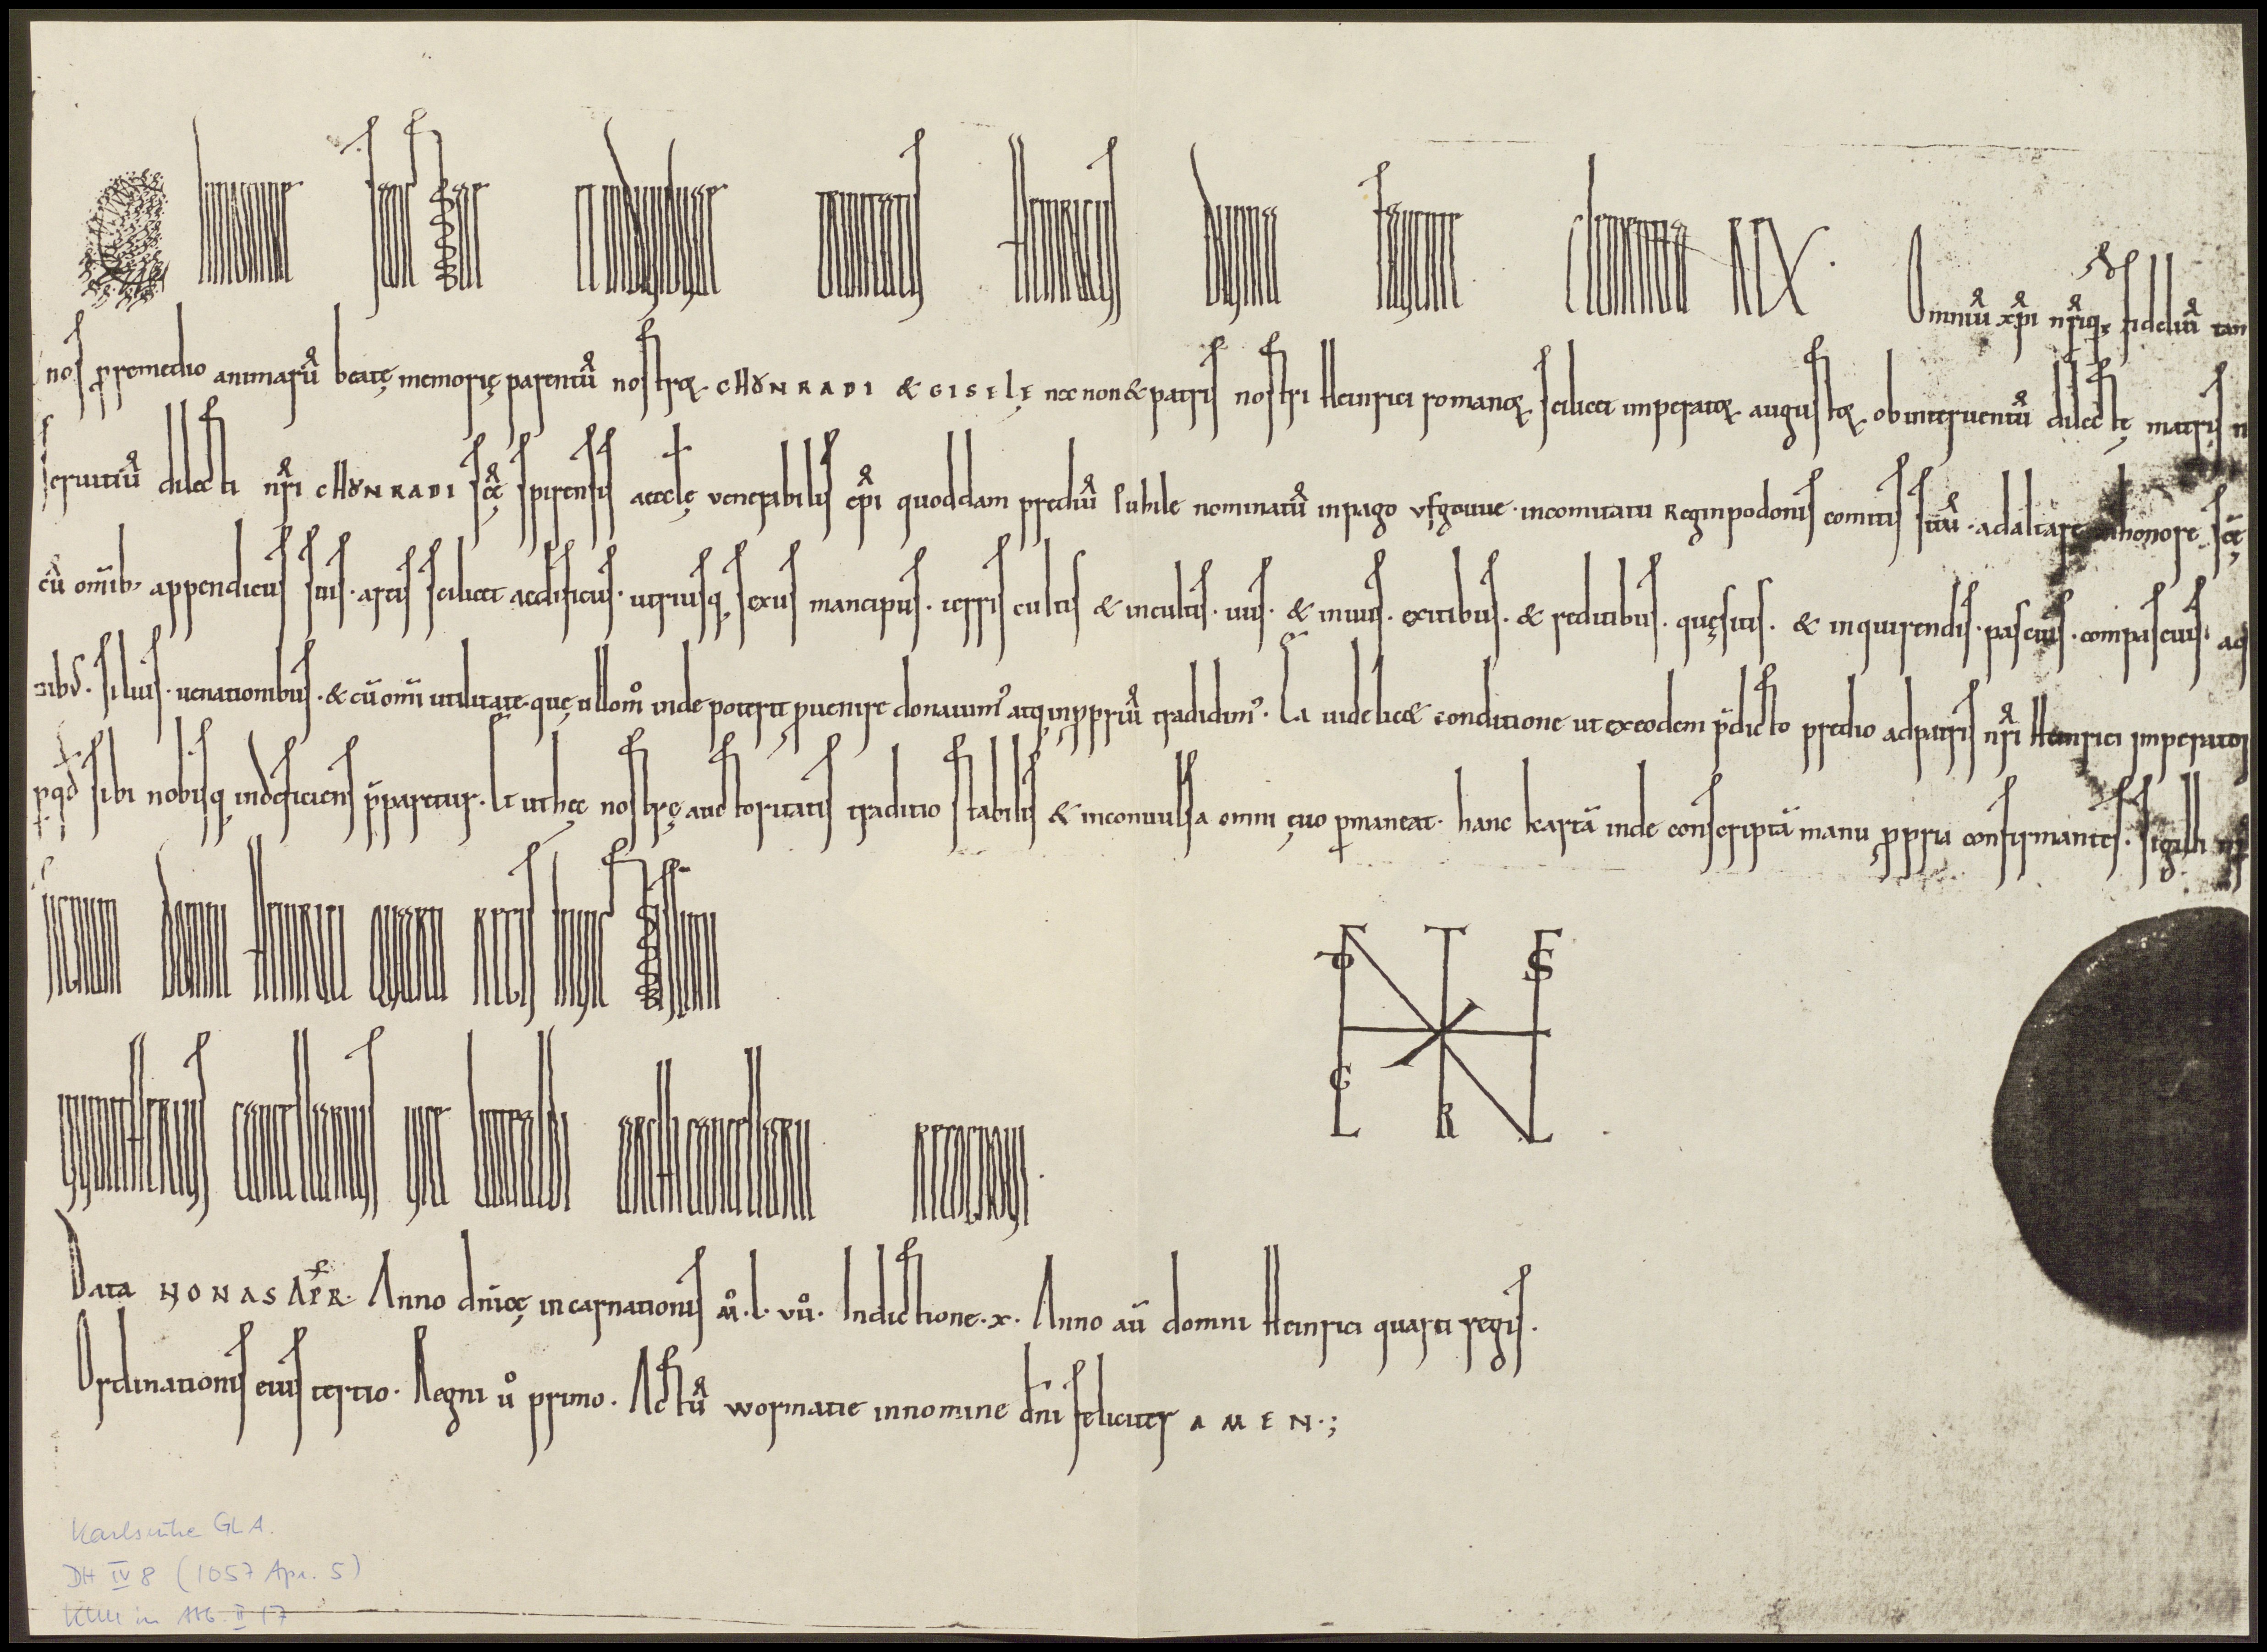 IN NOMINE SANCTAE ET INDIVIDUAE TRINITATIS HEINRICUS DIVINA FAVENTE CLEMENTIA REX. Omniū xp̄i nr̄iq; fideliū tam
nos p remedio animarū beatę memorię parentū nostroꝝ CHŎNRADI & GISELĘ nec non & patris nostri Heinrici romanoꝝ scilicet imperatoꝝ augustoꝝ ob interuentū dilectę matris n
seruitiū dilecti nr̄i CHŎNRADI sc̄ę spirensis aecclę venerabilis ep̄i quoddam prediū Luhile nominatū in pago vfgouue · in comitatu Reginpodonis comitis sitū · ad altare honore sc̄ę
cū omīb; appendiciis suis · areis scilicet aedificiis · utriusq; sexus mancipiis · terris cultis & incultis · uiis · & inuiis · exitibus · & reditibus · quęsitis · & inquirendis · pascuis · compascuis · aq
· siluis · uenationibus · & cū omī utilitate quę ullom̊ inde poterit puenire donauim᾽ atq; in ppriū tradidim᾽ · Ea uidelicet conditione ut ex eodem p̄dicto predio ad patris nr̄i Heinrici imperator
sibi nobisq; indeficiens p̄paretur · Et ut hęc nostrę auctoritatis traditio stabilis & inconuulsa omni ęuo pmaneat · hanc kartā inde conscriptā manu ppria confirmantes · sigilli nr̄i
SIGNUM DOMNI HEINRICI QUARTI REGIS INVICTISSIMI
GVUNITHERIUS CANCELLARIUS VICE LIUTBALDI ARCHICANCELLARII RECOGNOVI ·
Data NONAS APR · Anno dn̄icę incarnationis M̊ · L · VII̊ · Indictione · x · Anno aū domni Heinrici quarti regis ·
Ordinationis eius tertio · Regni ů primo · Actū wormatie in nomine dn̄i feliciter AMEN · ;
Karlsruhe GLA.
DH IV 8 (1057 Apr. 5)